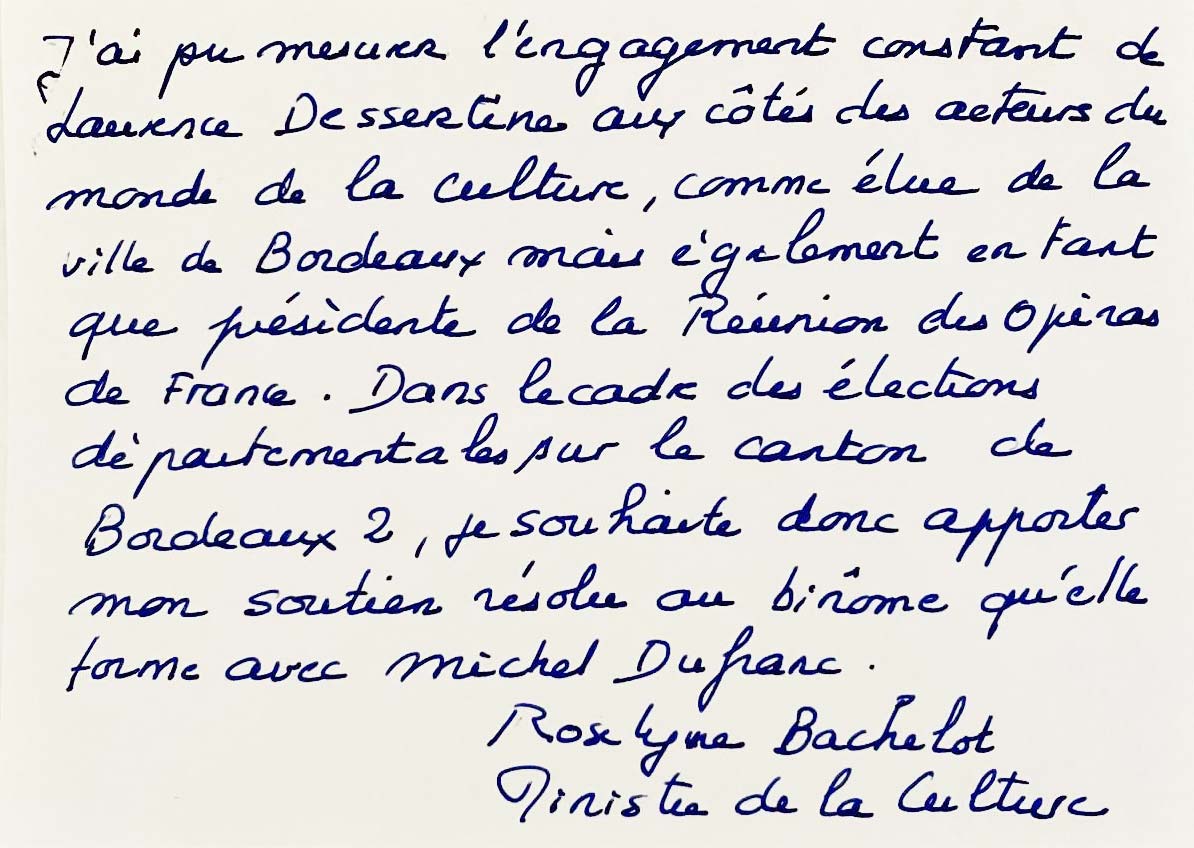 J'ai pu mesurer l'engagement constant de
Laurence Dessertine aux côtés des acteurs du
monde de la culture, comme élue de la
ville de Bordeaux mais également en tant
que présidente de la Réunion des Opéras
de France. Dans le cadre des élections
départementales sur le canton de
Bordeaux 2, je souhaite donc apporter
mon soutien résolu au binôme qu'elle
forme avec Michel Dufranc.
Roselyne Bachelot
Ministre de la Culture